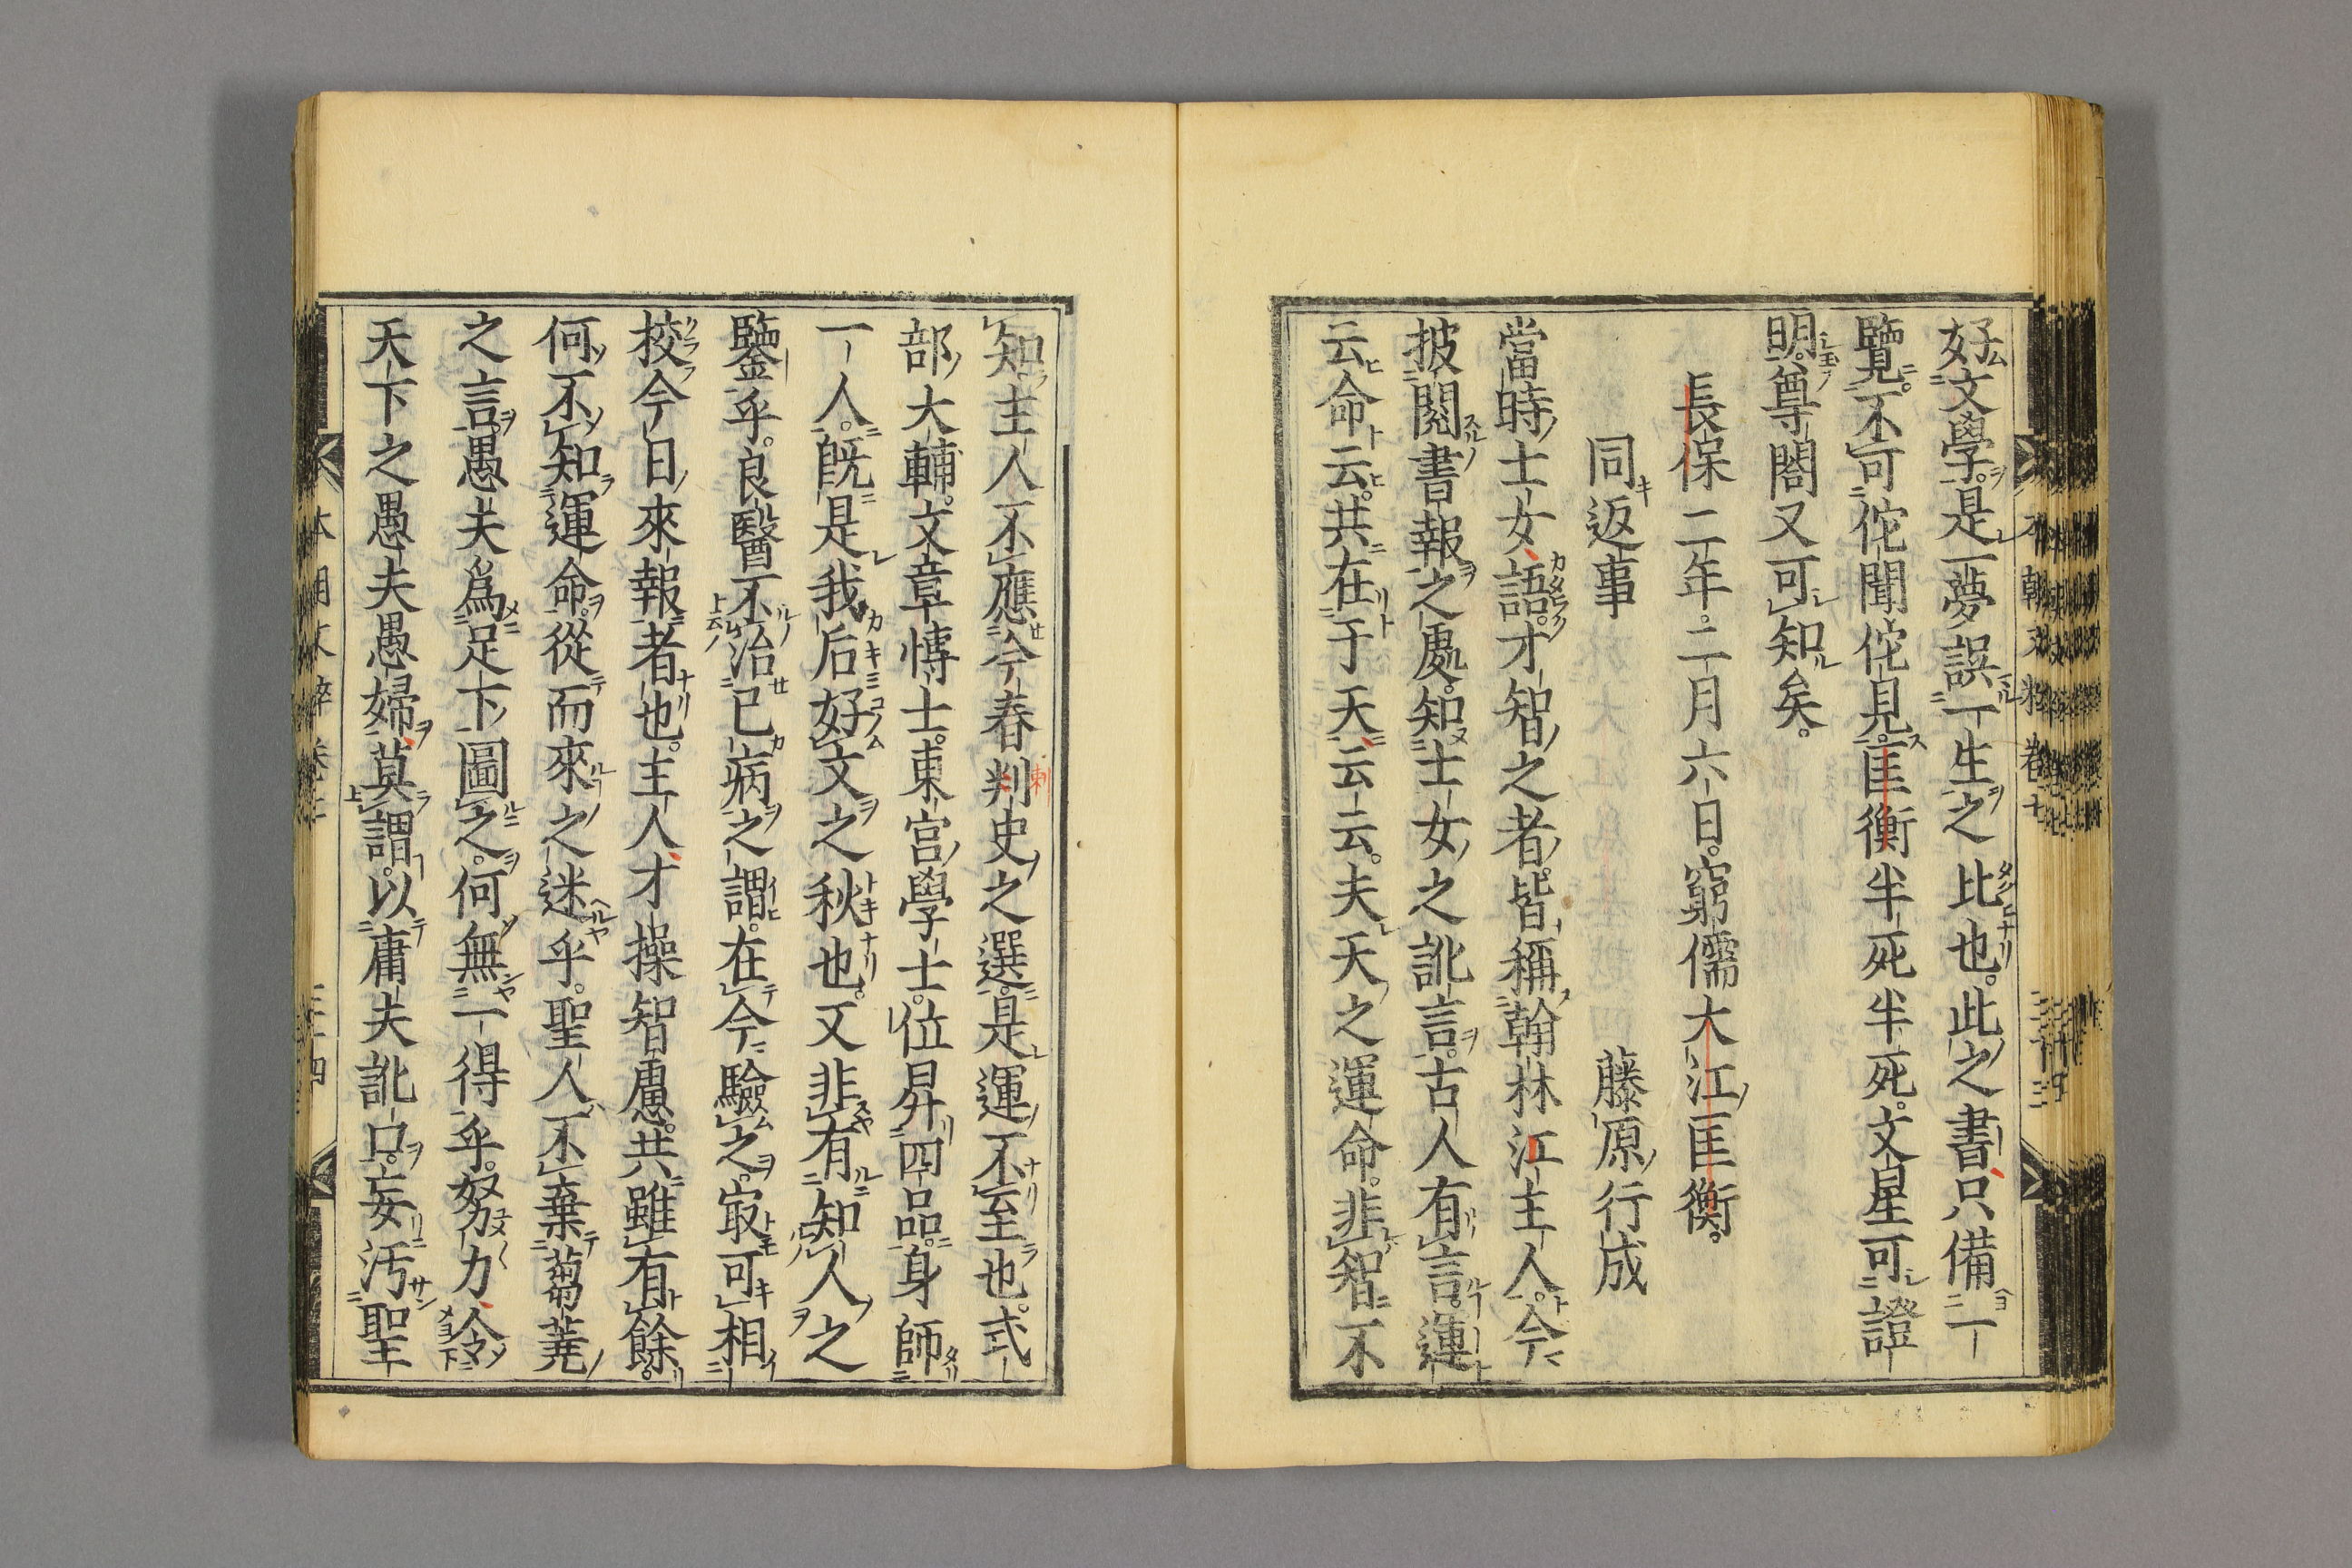 好文學是一夢誤一生之比也此之書只備一
覽不可佗聞佗見匡衡半死半死文星可證
明尊閤又可知矣
長保二年二月六日窮儒大江匡衡
同返事 藤原行成
當時士女語才智之者皆稱翰林江主人今
披閱書報之處知士女之訛言古人有言運
云命云共在于天云云夫天之運命非智不
知主人不應今春刺判史之選是運不至也式
部大輔文章博士東宮學士位昇四品身師
一人既是我后好文之秋也又非有知人之
鑒乎良醫不治已病之謂在今驗之寂可相
挍今日來報者也主人才操智慮共雖有餘
何不知運命從而來之迷乎聖人不棄蒭蕘
之言愚夫爲足下圖之何無一得乎努力令
天下之愚夫愚婦莫謂以庸夫訛口妄汚聖